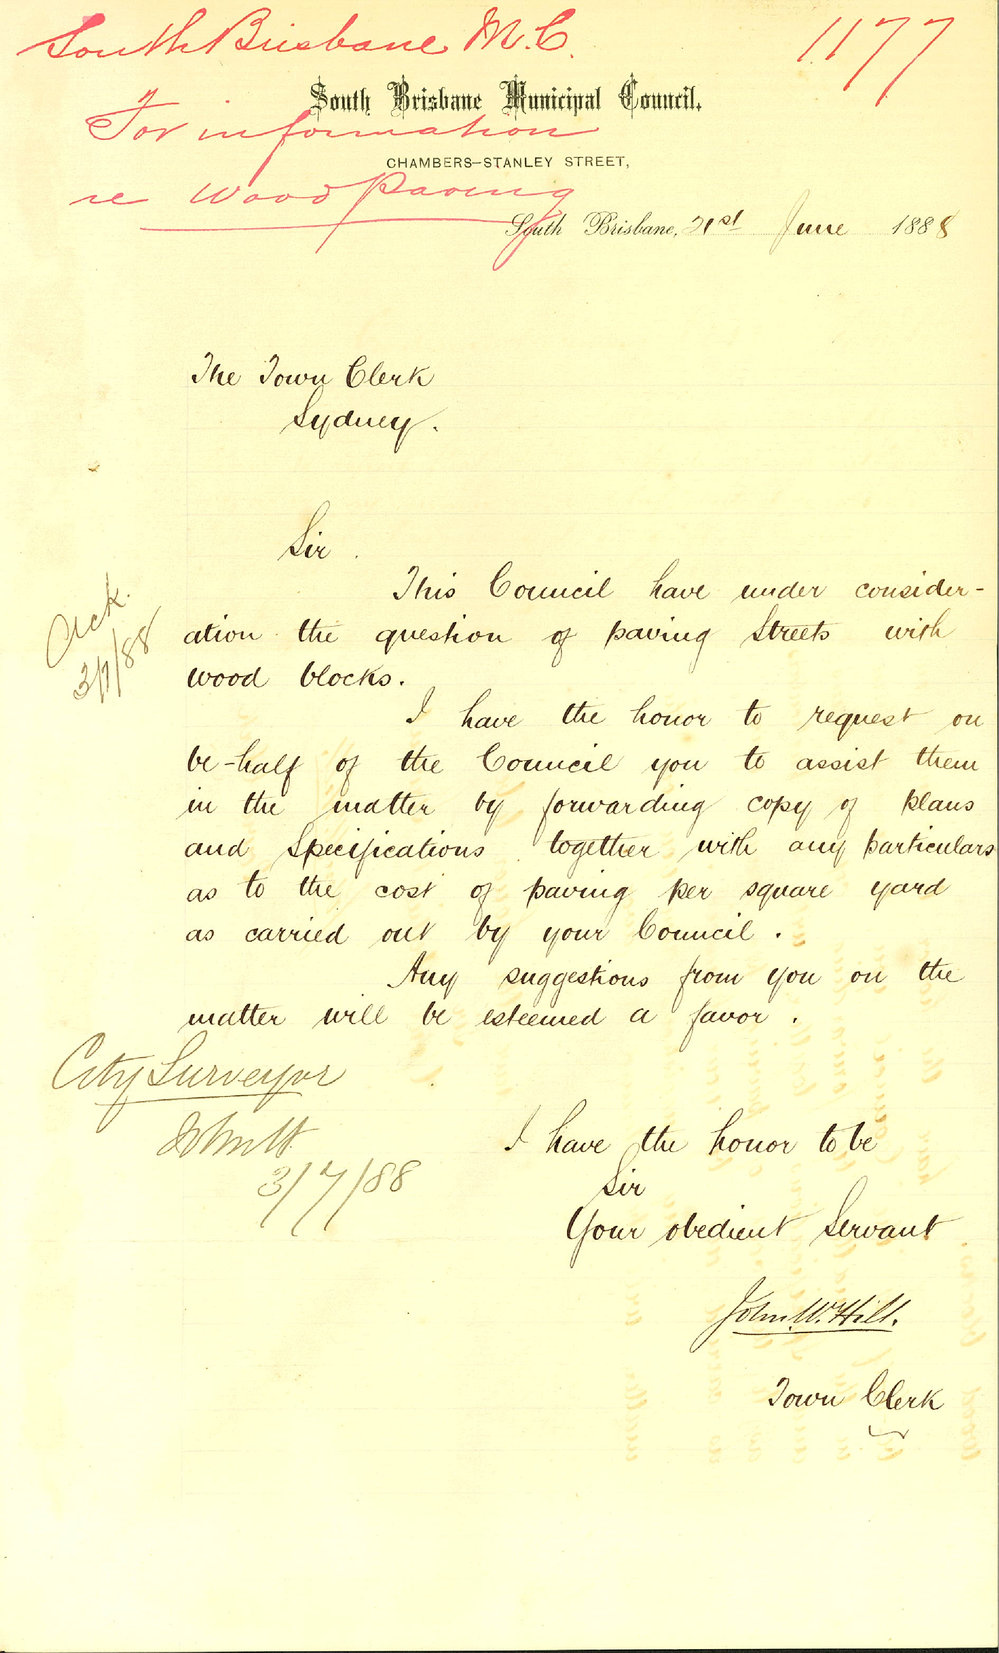 South Brisbane M.C.
1177
South Brisbane Municipal Council.
For information
CHAMBERS—STANLEY STREET,
re Wood Paving
South Brisbane, 21st June 1888
The Town Clerk
Sydney.
Sir.
This Council have under consider-
ation the question of paving Streets with
wood blocks.
Ack.
3/7/88
I have the honor to request on
be-half of the Council you to assist them
in the matter by forwarding copy of plans
and Specifications together with any particulars
as to the cost of paving per square yard
as carried out by your Council.
Any suggestions from you on the
matter will be esteemed a favor.
City Surveyor
3/7/88
I have the honor to be
Sir
Your obedient Servant
John W. Hill.
Town Clerk